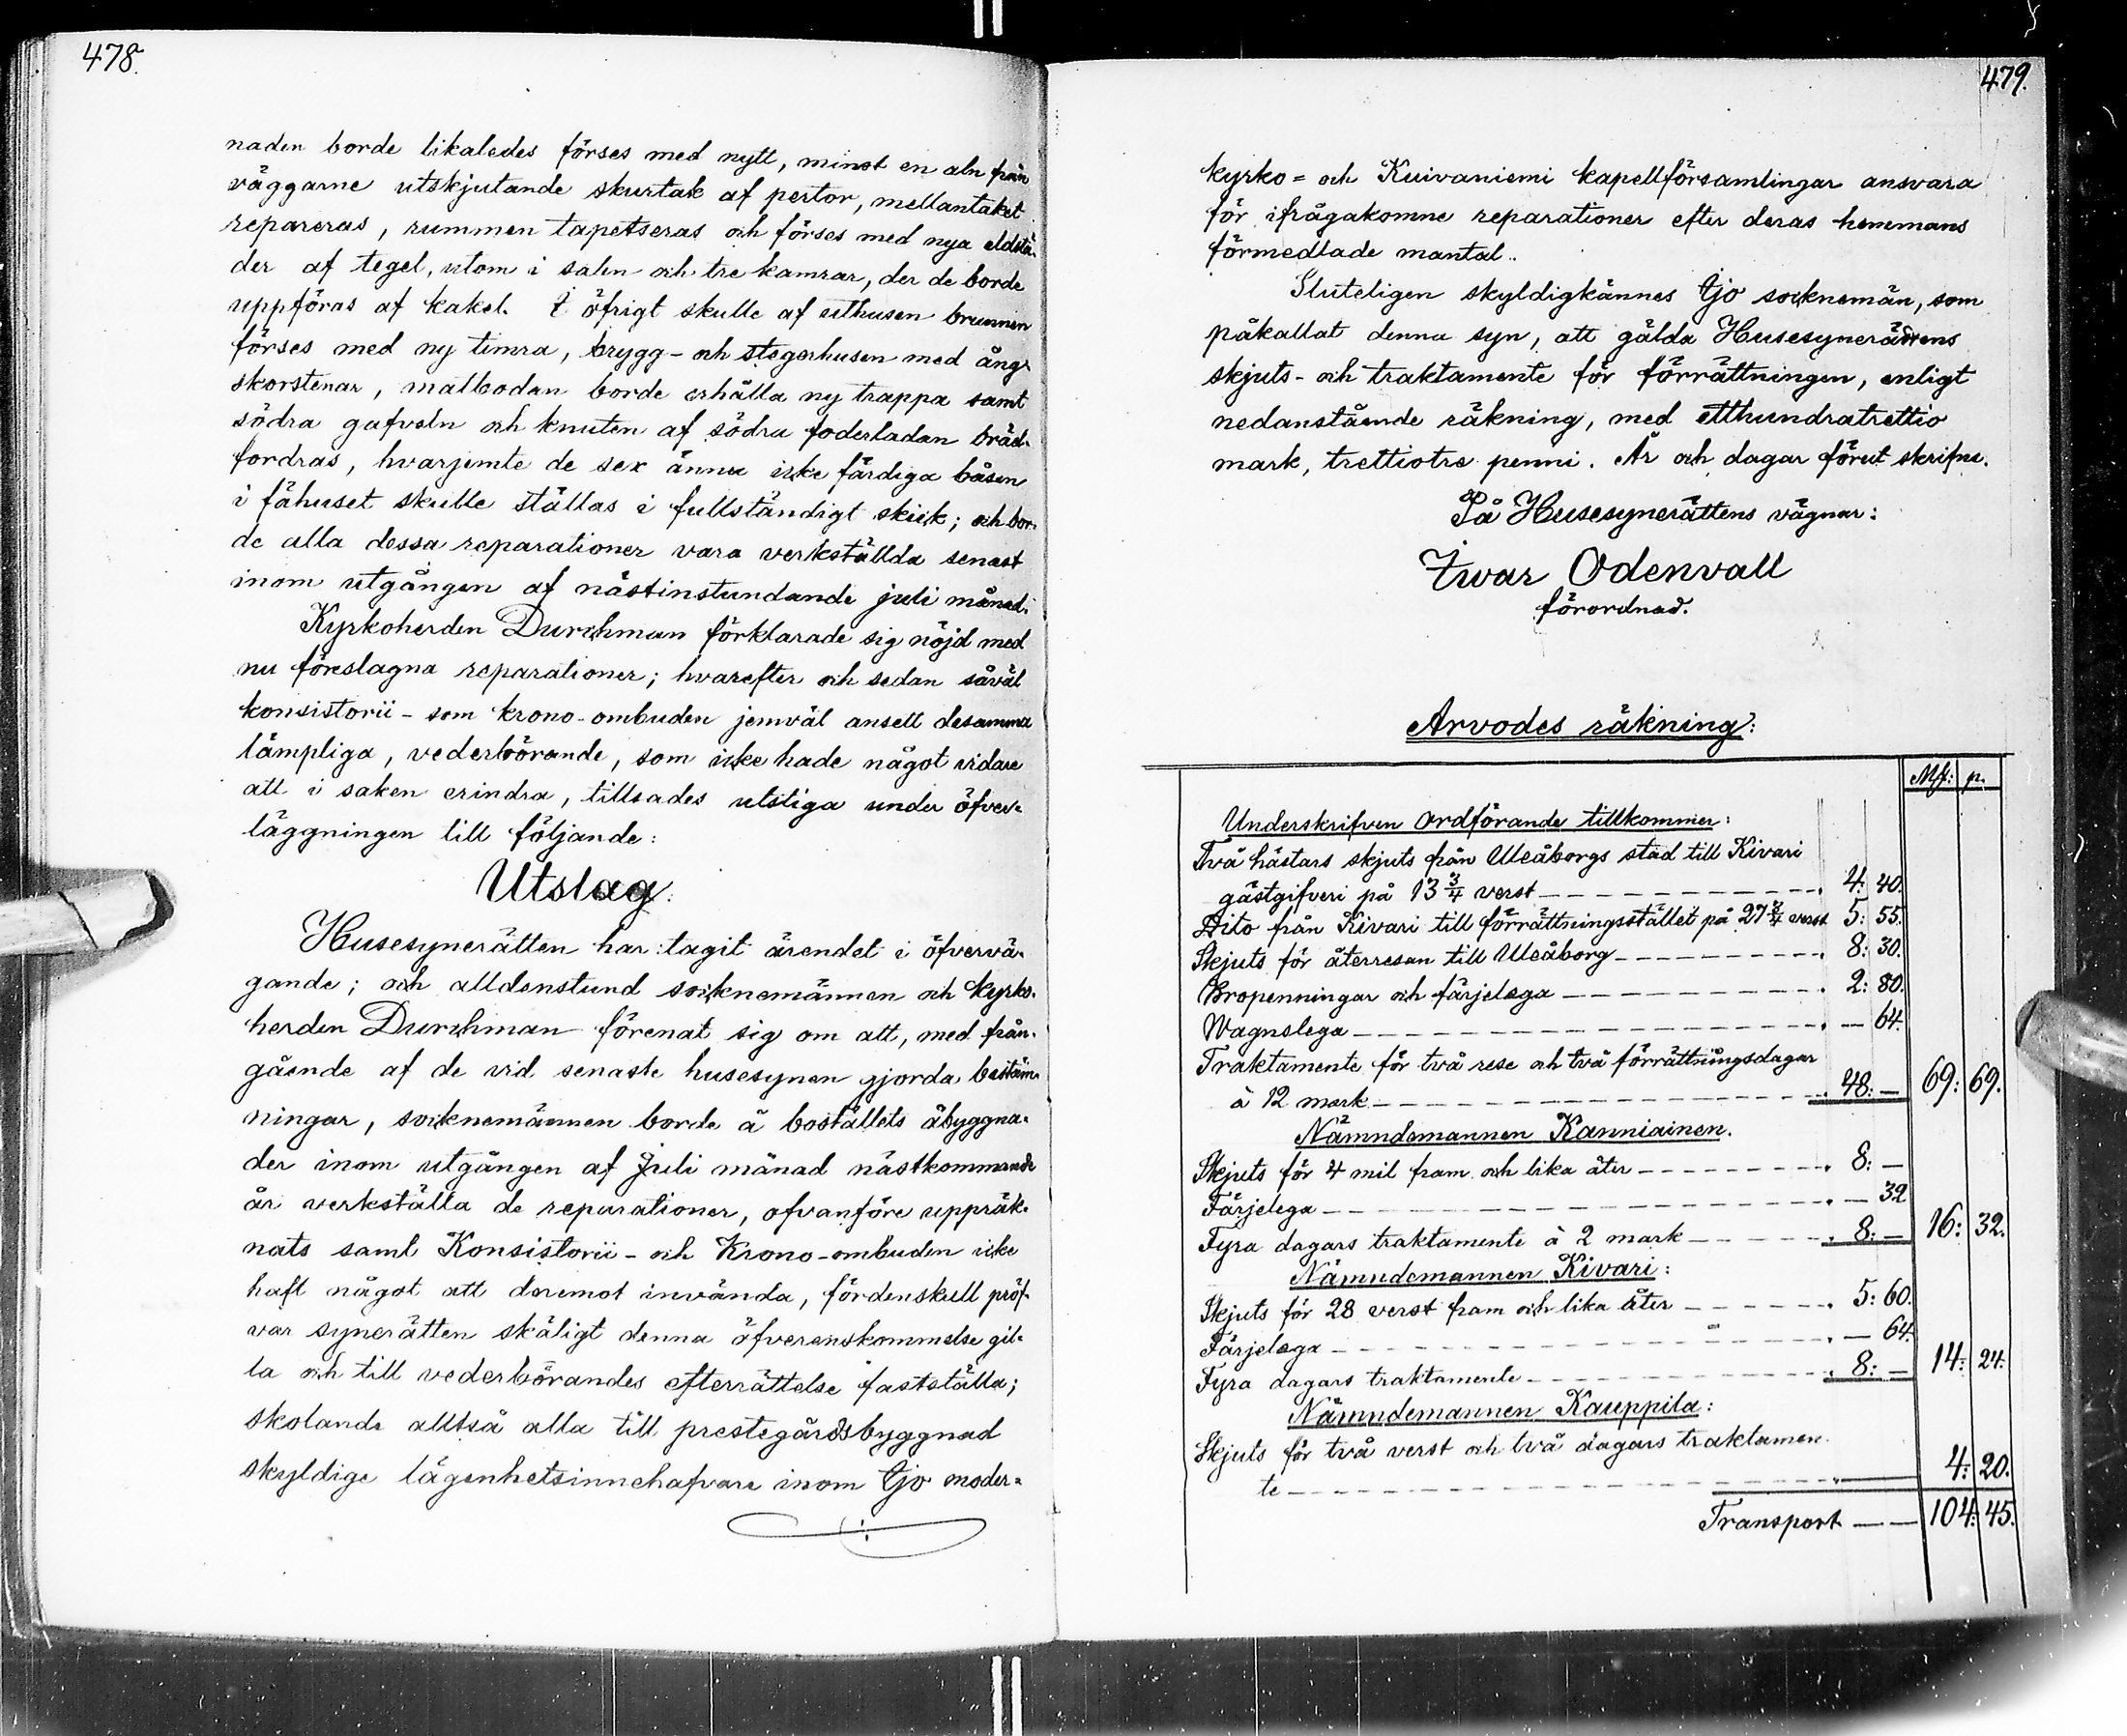 478.
naden borde likaledes förses med nytt, minst en aln från
väggarne utskjutande skurtak af pertor, mellantaket
repareras, rummen tapetseras och förses med nya eldstä-
der af tegel, utom i salen och tre kamrar, der de borde
uppföras af kakel. I öfrigt skulle af uthusen brunnen
förses med ny timra, brygg- och stegerhusen med ång-
skorstenar, matbodan borde erhålla ny trappa samt
södra gafveln och knuten af södra foderladan bräd-
fordras, hvarjemte de sex ännu icke färdiga båsen
i fähuset skulle ställas i fullständigt skick; och bor-
de alla dessa reparationer vara verkställda senast
inom utgången af nästinstundande juli månad.
Kyrkoherden Durchman förklarade sig nöjd med
nu föreslagna reparationer; hvarefter och sedan såväl
konsistorii- som krono-ombuden jemväl ansett desamma
lämpliga, vederbörande, som icke hade något vidare
att i saken erindra, tillsades utstiga under öfver-
läggningen till följande:
Utslag:
Husesynerätten har tagit ärendet i öfvervä-
gande; och alldenstund socknemännen och kyrko-
herden Durchman förenat sig om att, med från-
gående af de vid senaste husesynen gjorda bestäm-
ningar, socknemännen borde å boställets åbyggna-
der inom utgången af Juli månad nästkommande
år verkställa de reparationer, ofvanföre uppräk-
nats samt Konsistorii- och Krono-ombuden icke
haft något att deremot invända, fördenskull pröf-
var synerätten skäligt denna öfverenskommelse gil-
la och till vederbörandes efterrättelse fastställa;
skolande alltså alla till prestegårdsbyggnad
skyldige lägenhetsinnehafvare inom Ijo moder-
479.
kyrko- och Kuivaniemi kapellförsamlingar ansvara
för ifrågakomne reparationer efter deras hemmans
förmedlade mantal.
Sluteligen skyldigkännes Ijo socknemän, som
påkallat denna syn, att gälda Husesynerättens
skjuts- och traktamente för förrättningen, enligt
nedanstående räkning, med etthundratrettio
mark, trettiotre penni. År och dagar förut skrifne.
På Husesynerättens vägnar:
Iwar Odenvall
förordnad.
Arvodes räkning:
Mk: p.
Underskrifven ordförande tillkommer:
Två hästars skjuts från Uleåborgs stad till Kivari
gästgifveri på 13 3/4 verst 4: 40.
Dito från Kivari till förrättningsstället på 27 3/4 verst 5: 55.
Skjuts för återresan till Uleåborg 8: 30.
Bropenningar och färjelega 2: 80.
Wagnslega — 64.
Traktamente för två rese och två förrättningsdagar
à 12 mark 48: — 69: 69.
Nämndemannen Kanniainen.
Skjuts för 4 mil fram och lika åter 8: —
Färjelega — 32
Fyra dagars traktamente à 2 mark 8: — 16: 32.
Nämndemannen Kivari:
Skjuts för 28 verst fram och lika åter 5: 60.
Färjelega — 64.
Fyra dagars traktamente 8: — 14: 24.
Nämndemannen Kauppila:
Skjuts för två verst och två dagars traktamen-
te 4: 20.
Transport — — 104: 45.